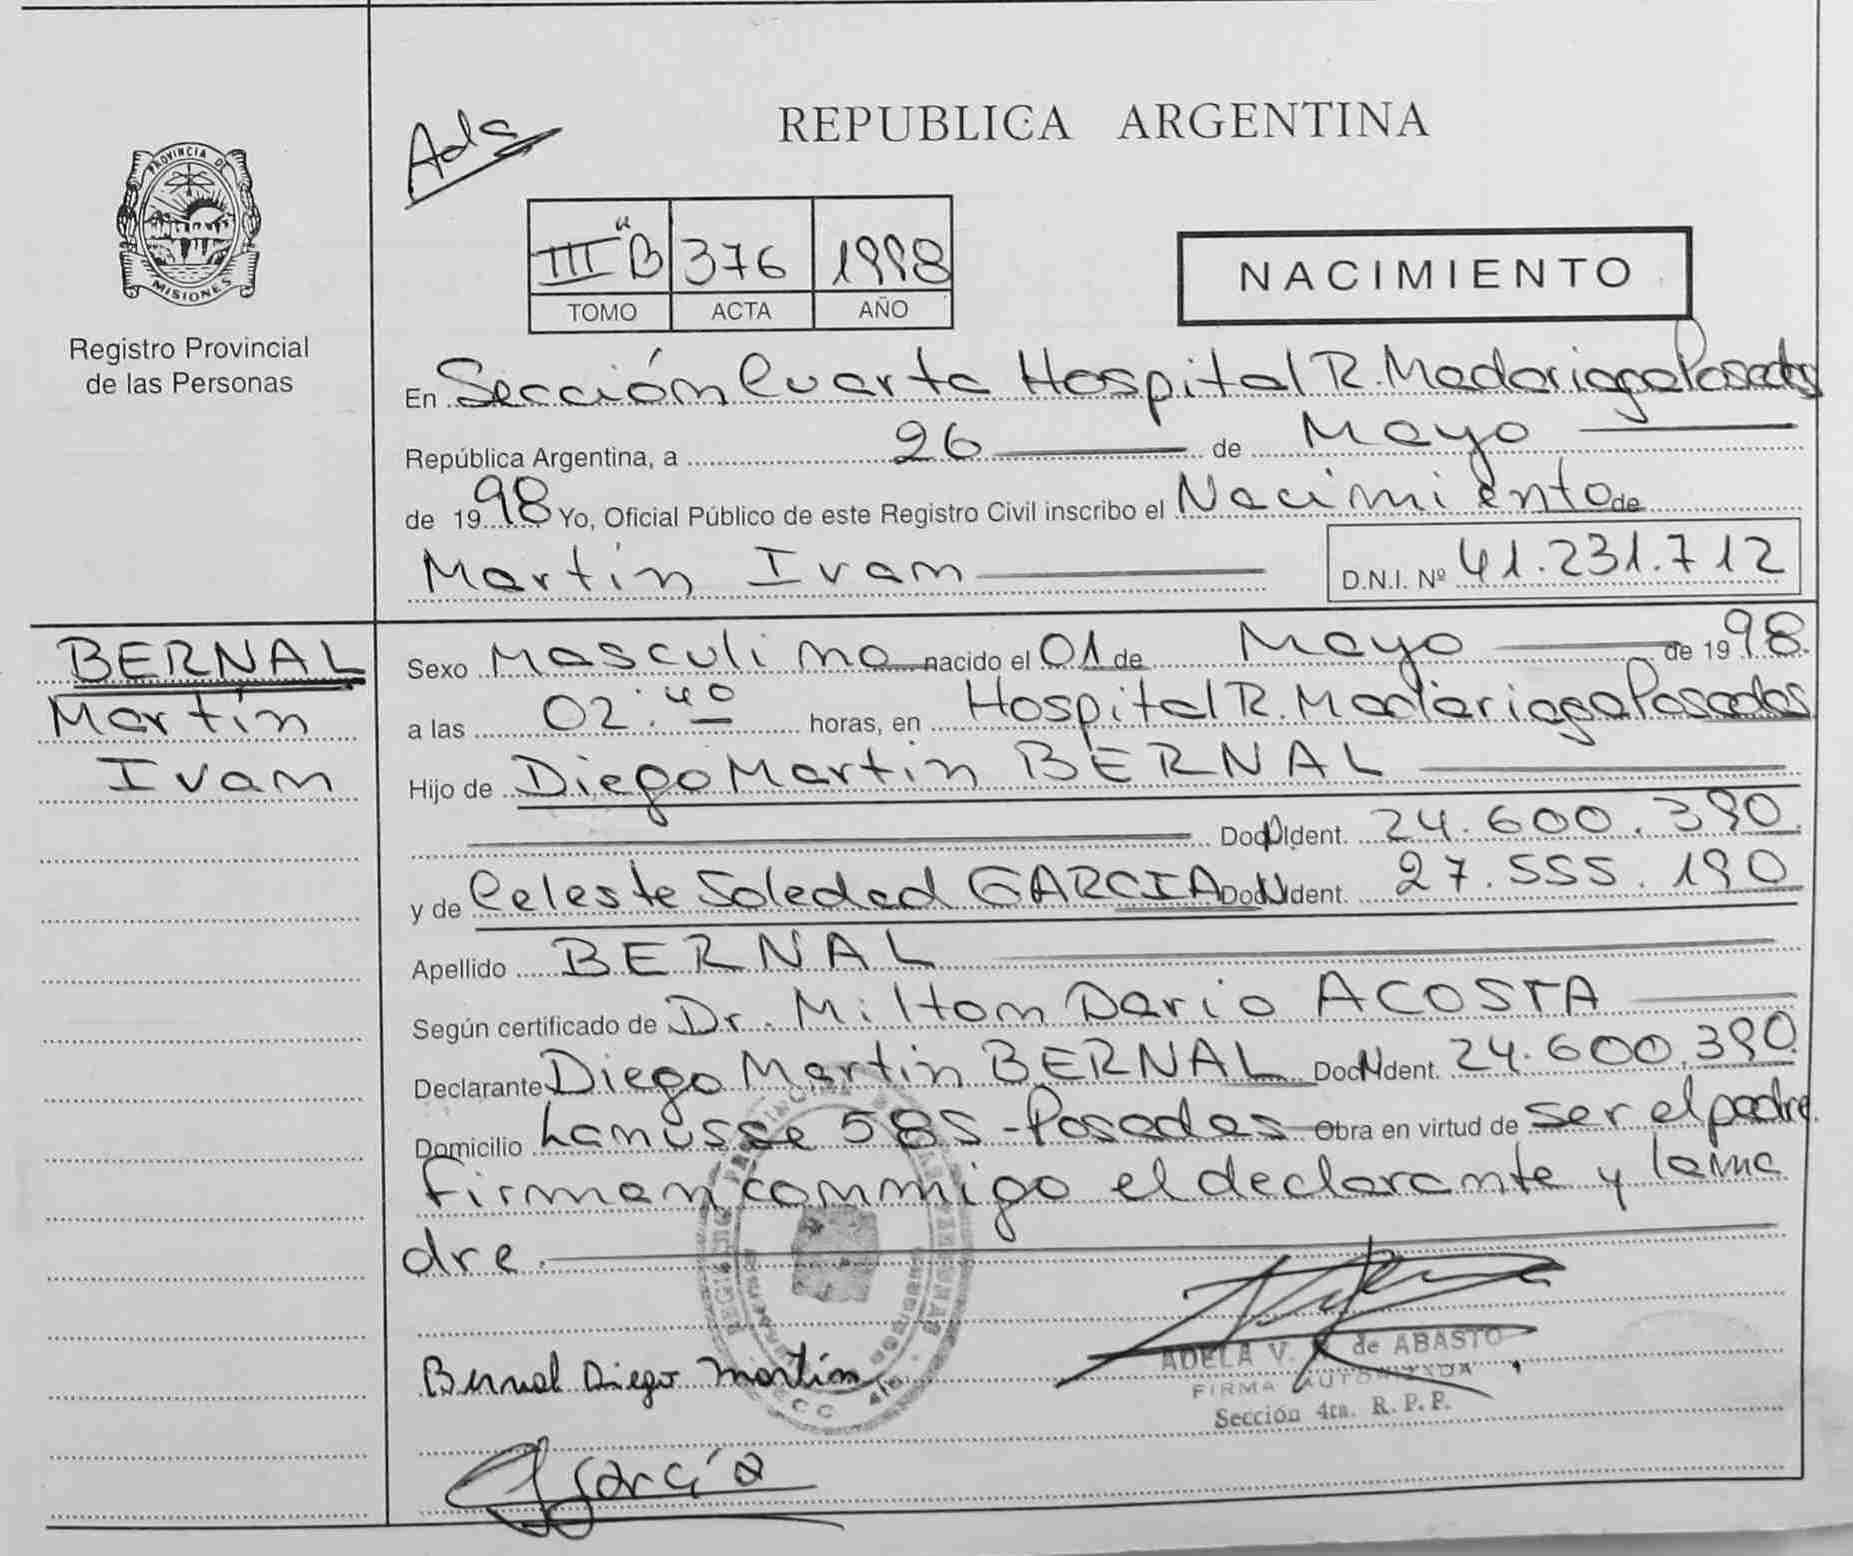 PROVINCIA DE
MISIONES
Registro Provincial
de las Personas
Ads
REPUBLICA ARGENTINA
III "B" 376 1998
TOMO ACTA AÑO
NACIMIENTO
En Sección Cuarta Hospital R. Madariaga Posadas
República Argentina, a 26 de Mayo
de 1998 Yo, Oficial Público de este Registro Civil inscribo el Nacimiento de
Martín Ivan D.N.I. Nº 41.231.712
BERNAL
Martín
Ivan
Sexo Masculino nacido el 01 de Mayo de 1998.
a las 02:40 horas, en Hospital R. Madariaga Posadas
Hijo de Diego Martin BERNAL
Doc. Ident. 24.600.390.
y de Celeste Soledad GARCIA Doc. Ident. 27.555.190
Apellido BERNAL
Según certificado de Dr. Milton Dario ACOSTA
Declarante Diego Martin BERNAL Doc. Ident. 24.600.390.
Domicilio Lanusse 585 - Posadas Obra en virtud de ser el padre.
Firman conmigo el declarante y la ma
dre.
Bernal Diego Martín
ADELA V. de ABASTO
FIRMA AUTORIZADA
Sección 4ta. R. P. P.
García